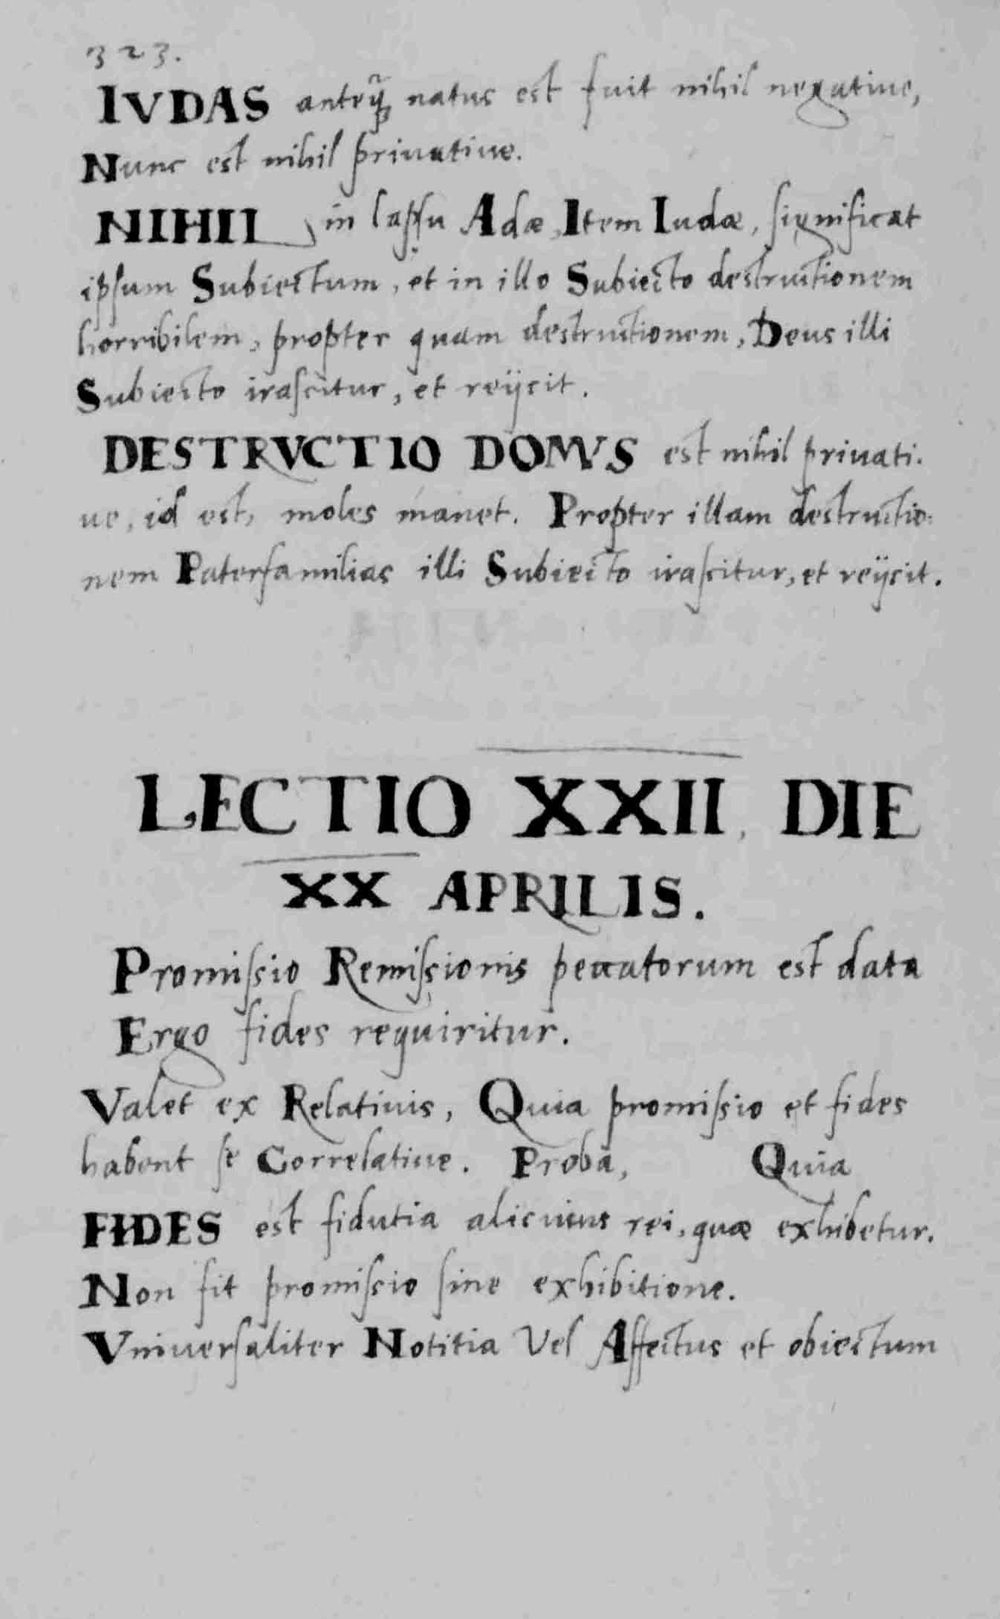 323.
IVDAS anteq̃ȝ natus est fuit nihil negatiue,
Nunc est nihil priuatiue.
NIHIL in lapsu Adæ, Item Iudæ, significat
ipsum Subiectum, et in illo Subiecto destructionem
horribilem, propter quam destructionem, Deus illi
Subiecto irascitur, et reijcit.
DESTRVCTIO DOMVS est nihil priuati-
ue, id est, moles manet. Propter illam destructio:
nem Paterfamilias illi Subiecto irascitur, et reijcit.
LECTIO XXII. DIE
XX APRILIS.
Promissio Remissionis peccatorum est data
Ergo fides requiritur.
Valet ex Relatiuis, Quia promissio et fides
habent se Correlatiue. Proba, Quia
FIDES est fidutia alicuius rei, quæ exhibetur.
Non fit promissio sine exhibitione.
Vniuersaliter Notitia Vel Affectus et obiectum